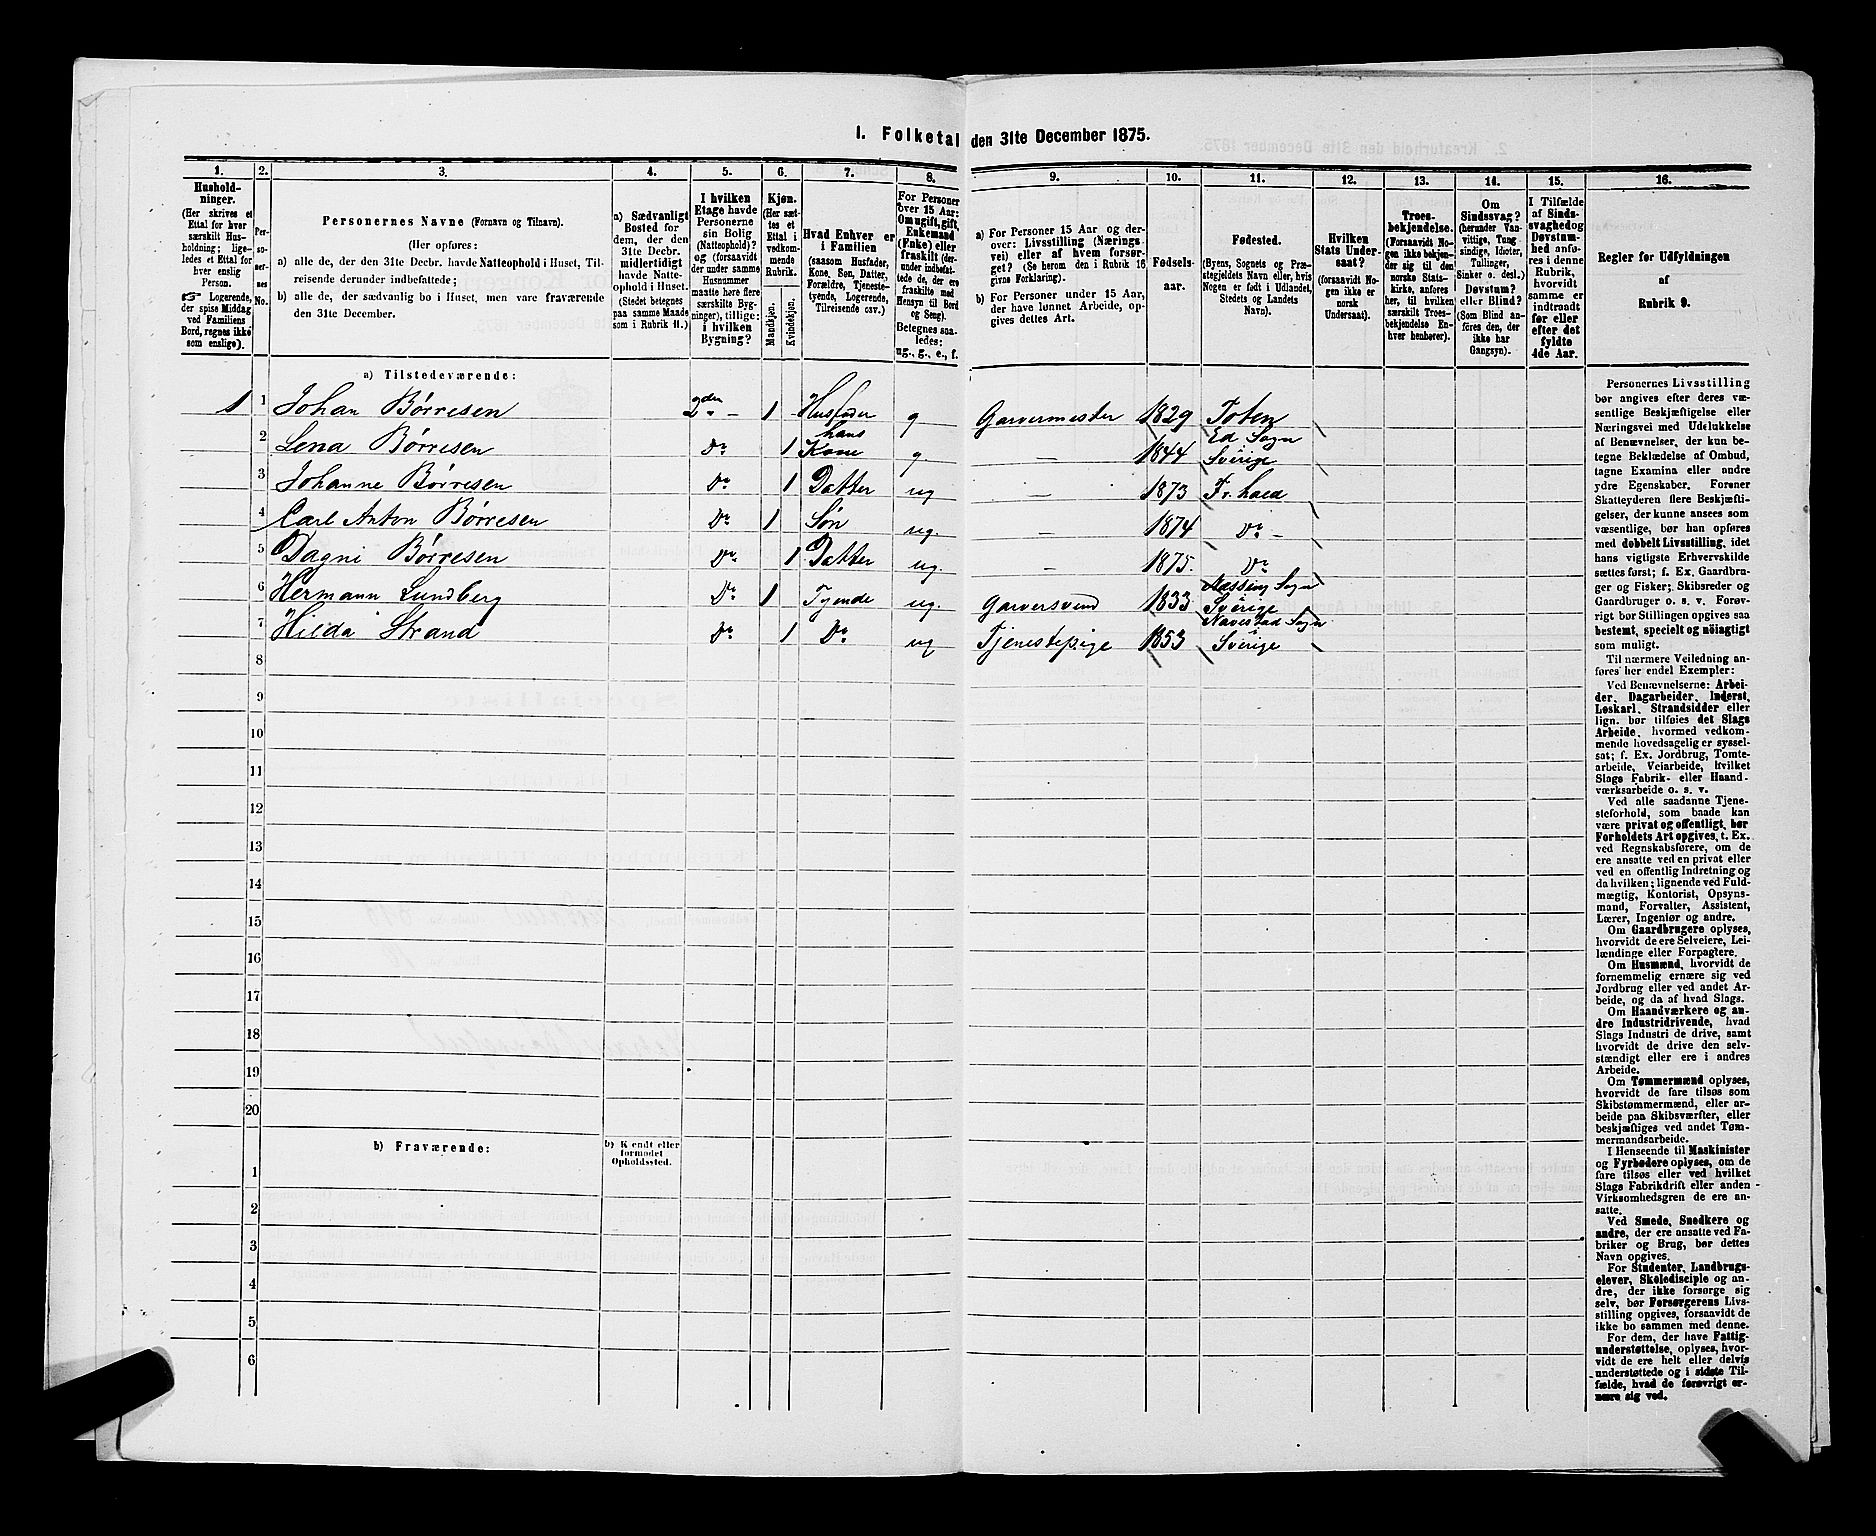 1. Folketal den 31te December 1875.
1. 2. 3. 4. 5. 6. 7. 8. 9. 10. 11. 12. 13. 14. 15. 16.
Hushold-
ninger.
(Her skrives et
Ettal for hver
særskilt Hus-
holdning; lige-
ledes et Ettal for
hver enslig
Person.
☞ Logerende,
der spise Middag
ved Familiens
Bord, regnes ikke
som enslige).
Per-
so-
ner-
nes
No.
Personernes Navne (Fornavn og Tilnavn).
(Her opføres:
a) alle de, der den 31te Decbr. havde Natteophold i Huset, Til-
reisende derunder indbefattede;
b) alle de, der sædvanlig bo i Huset, men vare fraværende
den 31te December.
a) Sædvanligt
Bosted for
dem, der den
31te Decbr.
midlertidigt
havde Natte-
ophold i Huset.
(Stedet betegnes
paa samme Maade
som i Rubrik 11.)
I hvilken
Etage havde
Personerne
sin Bolig
(Natteophold)?
og (forsaavidt
der under samme
Husnummer
maatte høre flere
særskilte Byg-
ninger), tillige:
i hvilken
Bygning?
Kjøn.
(Her sæt-
tes et
Ettal i
vedkom-
mende
Rubrik.
Mandkjøn.
Kvindekjøn.
Hvad Enhver er
i Familien
(saasom Husfader,
Kone, Søn, Datter,
Forældre, Tjeneste-
tyende, Logerende,
Tilreisende osv.)
For Personer
over 15 Aar:
Om ugift, gift,
Enkemand
(Enke) eller
fraskilt (der-
under indbefat-
tede de, der ere
fraskilte med
Hensyn til Bord
og Seng).
Betegnes saa-
ledes:
ug., g., e., f.
a) For Personer 15 Aar og der-
over: Livsstilling (Nærings-
vei) eller af hvem forsør-
get? (Se herom den i Rubrik 16
givne Forklaring).
b) For Personer under 15 Aar,
der have lønnet Arbeide, op-
gives dettes Art.
Fødsels-
aar.
Fødested.
(Byens, Sognets og Præ-
stegjeldets Navn eller, hvis
Nogen er født i Udlandet,
Stedets og Landets
Navn).
Hvilken
Stats Under-
saat?
(forsaavidt No-
gen ikke er
norsk
Undersaat).
Troes-
bekjendelse.
(Forsaavidt No-
gen ikke bekjen-
der sig til den
norske Stats-
kirke, anføres
her, til hvilken
særskilt Troes-
bekjendelse En-
hver henhører).
Om
Sindssvag?
(herunder Van-
vittige, Tung-
sindige, Idioter,
Tullinger,
Sinker o. desl.)
Døvstum?
eller Blind?
(Som Blind an-
føres den, der
ikke har
Gangsyn).
I Tilfælde
af Sinds-
svaghed og
Døvstum-
hed anfø-
res i denne
Rubrik,
hvorvidt
samme er
indtraadt
før eller
efter det
fyldte
4de Aar.
Regler for Udfyldningen
af
Rubrik 9.
a) Tilstedeværende:
1 1 Johan Børresen 2den - 1 Husfader g Garvermester 1829 Toten
2 Lena Børresen Do 1 hans Kone g. — 1844 Ed Sogn Sverige
3 Johanne Børresen Do 1 Datter ug — 1873 Fr. hald
4 Carl Anton Børresen Do 1 Søn ug. — 1874 Do -
5 Dagni Børresen Do 1 Datter ug. — 1875. Do
6 Hermann Lundberg Do 1 Tyende ug. Garversvend 1833 Sogn Sverige
7 Hilda Strand Do 1 Do ug Tjenestepige 1853 Navestad Sogn Sverige
8
9
10
11
12
13
14
15
16
17
18
19
20
b) Fraværende:
b) Kjendt eller
formodet
Opholdssted.
1
2
3
4
5
6
Personernes Livsstilling
bør angives efter deres væ-
sentlige Beskjæftigelse eller
Næringsvei med Udelukkelse
af Benævnelser, der kun be-
tegne Beklædelse af Ombud,
tagne Examina eller andre
ydre Egenskaber. Forener
Skatteyderen flere Beskjæfti-
gelser, der kunne ansees som
væsentlige, bør han opføres
med dobbelt Livsstilling, idet
hans vigtigste Erhvervskilde
sættes først; f. Ex. Gaardbru-
ger og Fisker; Skibsreder og
Gaardbruger o. s. v. Forøv-
rigt bør Stillingen opgives saa
bestemt, specielt og nøiagtigt
som muligt.
Til nærmere Veiledning an-
føres her endel Exempler:
Ved Benævnelserne: Arbei-
der, Dagarbeider, Inderst,
Løskarl, Strandsidder eller
lign. bør tilføies det Slags
Arbeide, hvormed vedkom-
mende hovedsagelig er syssel-
sat; f. Ex. Jordbrug, Tomte-
arbeide, Veiarbeide, hvilket
Slags Fabrik- eller Haand-
værksarbeide o. s. v.
Ved alle saadanne Tjene-
steforhold, som baade kan
være privat og offentligt, bør
Forholdets Art opgives, t. Ex.
ved Regnskabsførere, om de
ere ansatte ved en privat eller
ved en offentlig Indretning og
da hvilken; lignende ved Fuld-
mægtig, Kontorist, Opsyns-
mand, Forvalter, Assistent,
Lærer, Ingeniør og andre.
Om Gaardbrugere oplyses,
hvorvidt de ere Selveiere, Lei-
lændinge eller Forpagtere.
Om Husmænd, hvorvidt de
fornemmelig ernære sig ved
Jordbrug eller ved andet Ar-
beide, og da af hvad Slags.
Om Haandværkere og an-
dre Industridrivende, hvad
Slags Industri de drive, samt
hvorvidt de drive den selv-
stændigt eller ere i andres
Arbeide.
Om Tømmermænd oplyses,
hvorvidt de fare tilsøs som
Skibstømmermænd, eller ar-
beide paa Skibsværfter, eller
beskjæftiges ved andet Tøm-
mermandsarbeide.
I Henseende til Maskinister
og Fyrbødere oplyses, om de
fare tilsøs eller ved hvilket
Slags Fabrikdrift eller anden
Virksomhedsgren de ere an-
satte.
Ved Smede, Snedkere og
andre, der ere ansatte ved Fa-
briker og Brug, bør dettes
Navn opgives.
For Studenter, Landbrugs-
elever, Skoledisciple og an-
dre, der ikke forsørge sig
selv, bør Forsørgerens Livs-
stilling opgives, forsaavidt de
ikke bo sammen med denne.
For dem, der have Fattig-
understøttelse, oplyses, hvor-
vidt de ere helt eller delvis
understøttede og i sidste Til-
fælde, hvad de forøvrigt er-
nære sig ved.